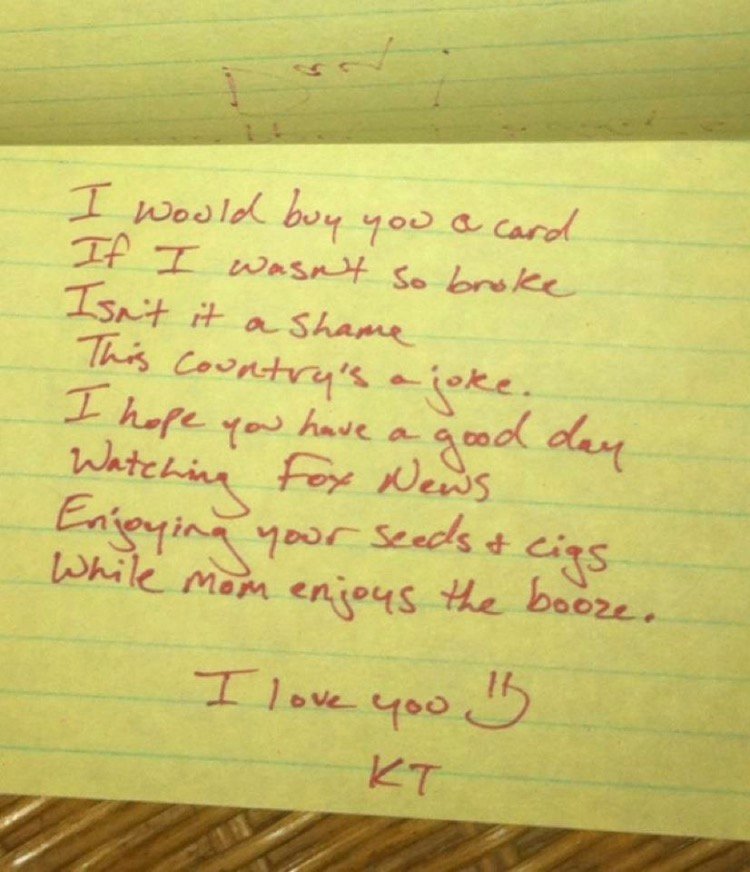 I would buy you a card
If I wasn't so broke
Isn't it a shame
This country's a joke.
I hope you have a good day
Watching Fox News
Enjoying your seeds + cigs
While mom enjoys the booze.
I love you
KT